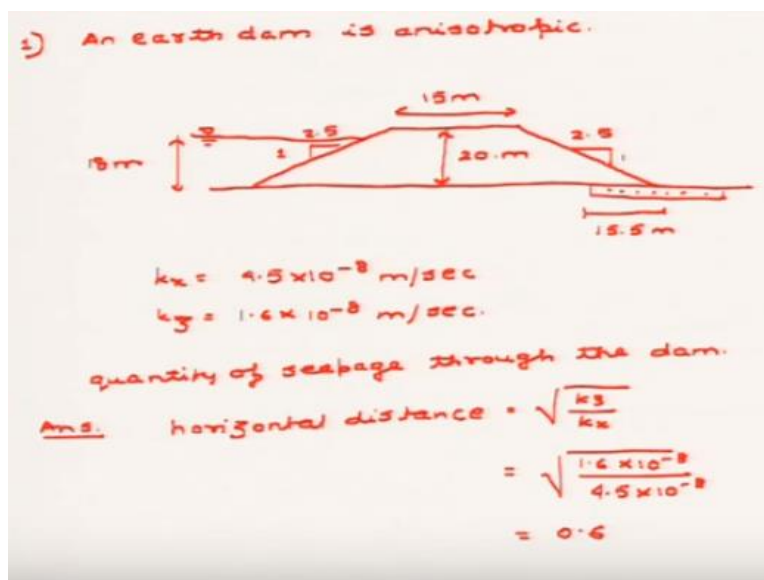 1) An earth dam is anisotropic.
15 m
2.5
2.5
18 m
1
20 m
1
15.5 m
kx = 4.5 x 10-8 m/sec
kz = 1.6 x 10-8 m/sec.
quantity of seepage through the dam.
Ans. horizontal distance = √kz/kx
= √1.6 x 10-8/4.5 x 10-8
= 0.6